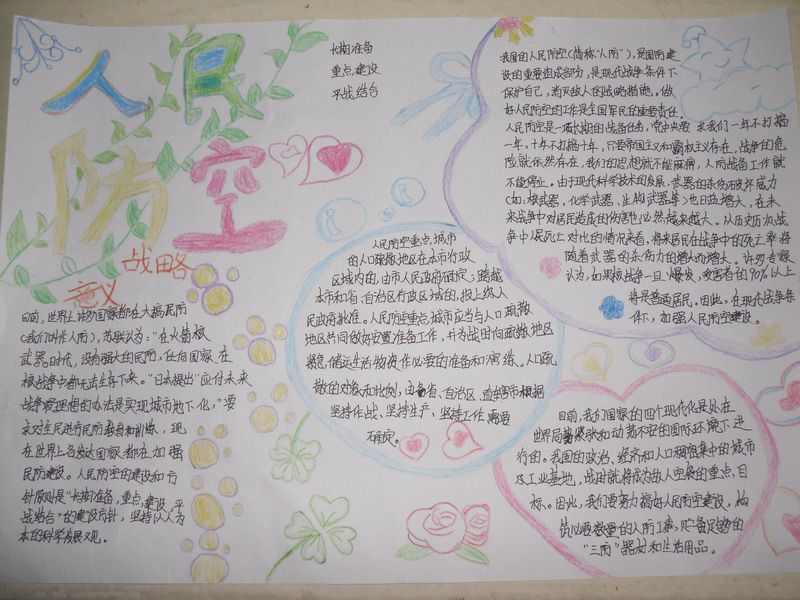 人民
防空
战略
意义
长期准备
重点建设
平战结合
目前,世界上许多国家都在大搞民防
(我们叫作人防),苏联认为:"在火箭核
武器时代,没有强大的民防,任何国家在
核战争中都无法生存下来。"日本提出"应付未来
战争最理想的办法是实现城市地下化,"要
求对全民进行民防教育和训练,现
在世界上各发达国家都在加强
民防建设。人民防空的建设和方
针原则是"长期准备,重点建设,平
战结合"的建设方针,坚持以人为
本的科学发展观。
人民防空重点,城市
的人口疏散地区在本市行政
区域内的,由市人民政府确定;跨越
本市和省、自治区行政区域的,报上级人
民政府批准。人民防空重点,城市应当与人口疏散
地区共同做好安置准备工作,并为战时向疏散地区
紧急储运生活物资作必要的准备和演练。人口疏
散的对象和比例,由各省、自治区、直辖市根据
坚持作战、坚持生产,坚持工作需要
确定。
我国的人民防空(简称"人防"),是国防建
设的重要组成部分,是现代战争条件下
保护自己,消灭敌人的战略措施。做
好人民防空的工作是全国军民的重要责任。
人民防空是一项长期的战备任务,党中央要求我们一年不打搞
一年,十年不打搞十年,只要帝国主义和霸权主义存在,战争的危
险就依然存在,我们的思想就不能麻痹,人防战备工作就
不能停止。由于现代科学技术的发展,武器的杀伤破坏威力
(如:核武器,化学武器、生物武器等)也日益增大,在未
来战争中对居民造成的伤害也必然越来越大。从历史历次战
争中军民死亡对比的情况来看,将来居民在战争中的死亡率将
随着武器的杀伤力的增大而增大。许多专家
认为,如果核战争一旦爆发,受害者的90%以上
将是普通居民。因此,在现代战争条
件下,加强人民防空建设。
目前,我们国家的四个现代化是处在
世界局势紧张和动荡不安的国际环境下进
行的。我国的政治、经济和人口稠密集中的城市
及工业基地,战时就将成为敌人空袭的重点,目
标。因此,我们要努力搞好人民防空建设,构
筑必要数量的人防工事,贮备足够的
"三防"器材和生活用品。